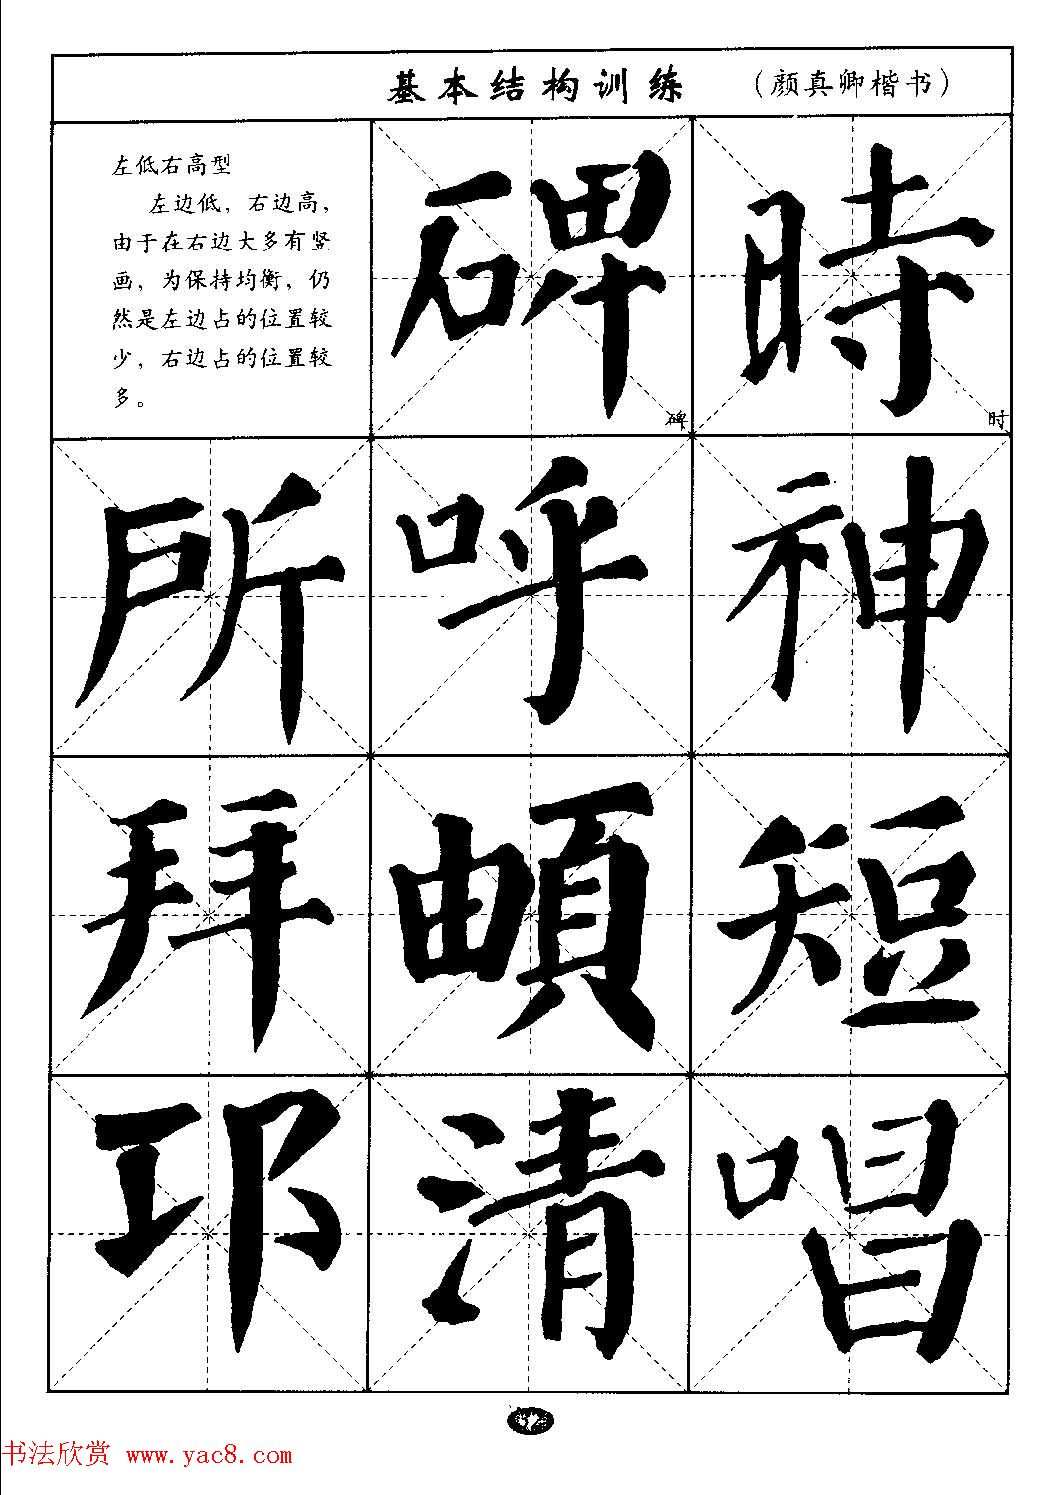 基本结构训练 （颜真卿楷书）
左低右高型
左边低，右边高，
由于在右边大多有竖
画，为保持均衡，仍
然是左边占的位置较
少，右边占的位置较
多。
碑 時
碑 时
所 呼 神
拜 頔 短
邛 清 唱
书法欣赏 www.yac8.com